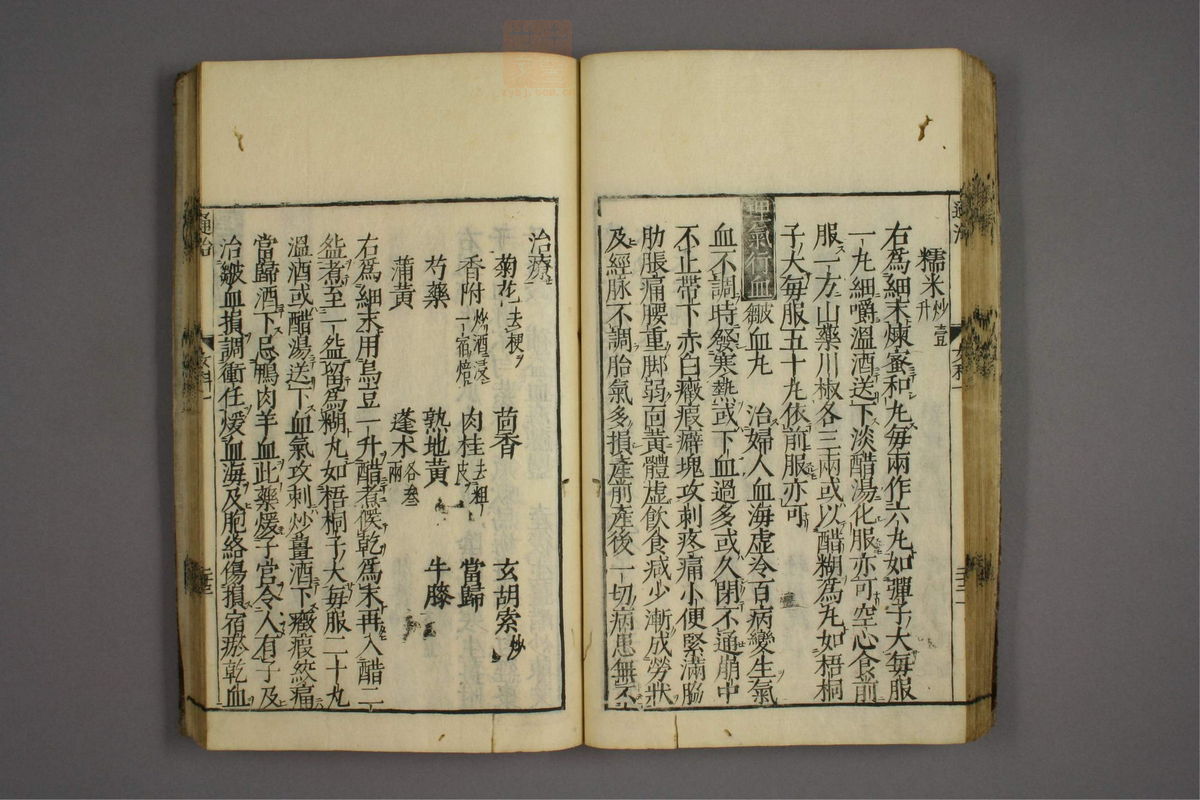 糯米炒壹升
右為細末煉蜜和丸毎兩作六丸如彈子大毎服
一丸細嚼溫酒送下淡醋湯化服亦可空心食前
服一方山藥川椒各三兩或以醋糊為丸如梧桐
子大毎服五十丸依前服亦可
理氣行血 皺血丸 治婦人血海虛冷百病變生氣
血不調時發寒熱或下血過多或久閉不通崩中
不止帶下赤白癥瘕癖塊攻刺疼痛小便緊滿脇
肋脹痛腰重脚弱面黃體虛飲食減少漸成勞狀
及經脉不調胎氣多損產前產後一切病患無不
治療
菊花去梗 茴香 玄胡索炒
香附炒酒浸一宿焙 肉桂去粗皮 當歸
芍藥 熟地黃 牛膝
蒲黃 蓬朮各叁兩
右為細末用烏豆一升醋煮候乾為末再入醋二
盌煮至一盌留為糊丸如梧桐子大毎服二十丸
溫酒或醋湯送下血氣攻刺炒薑酒下癥瘕絞痛
當歸酒下忌鴨肉羊血此藥煖子宮令人有子及
治皺血損調衝任煖血海及胞絡傷損宿瘀乾血
通治 女科一